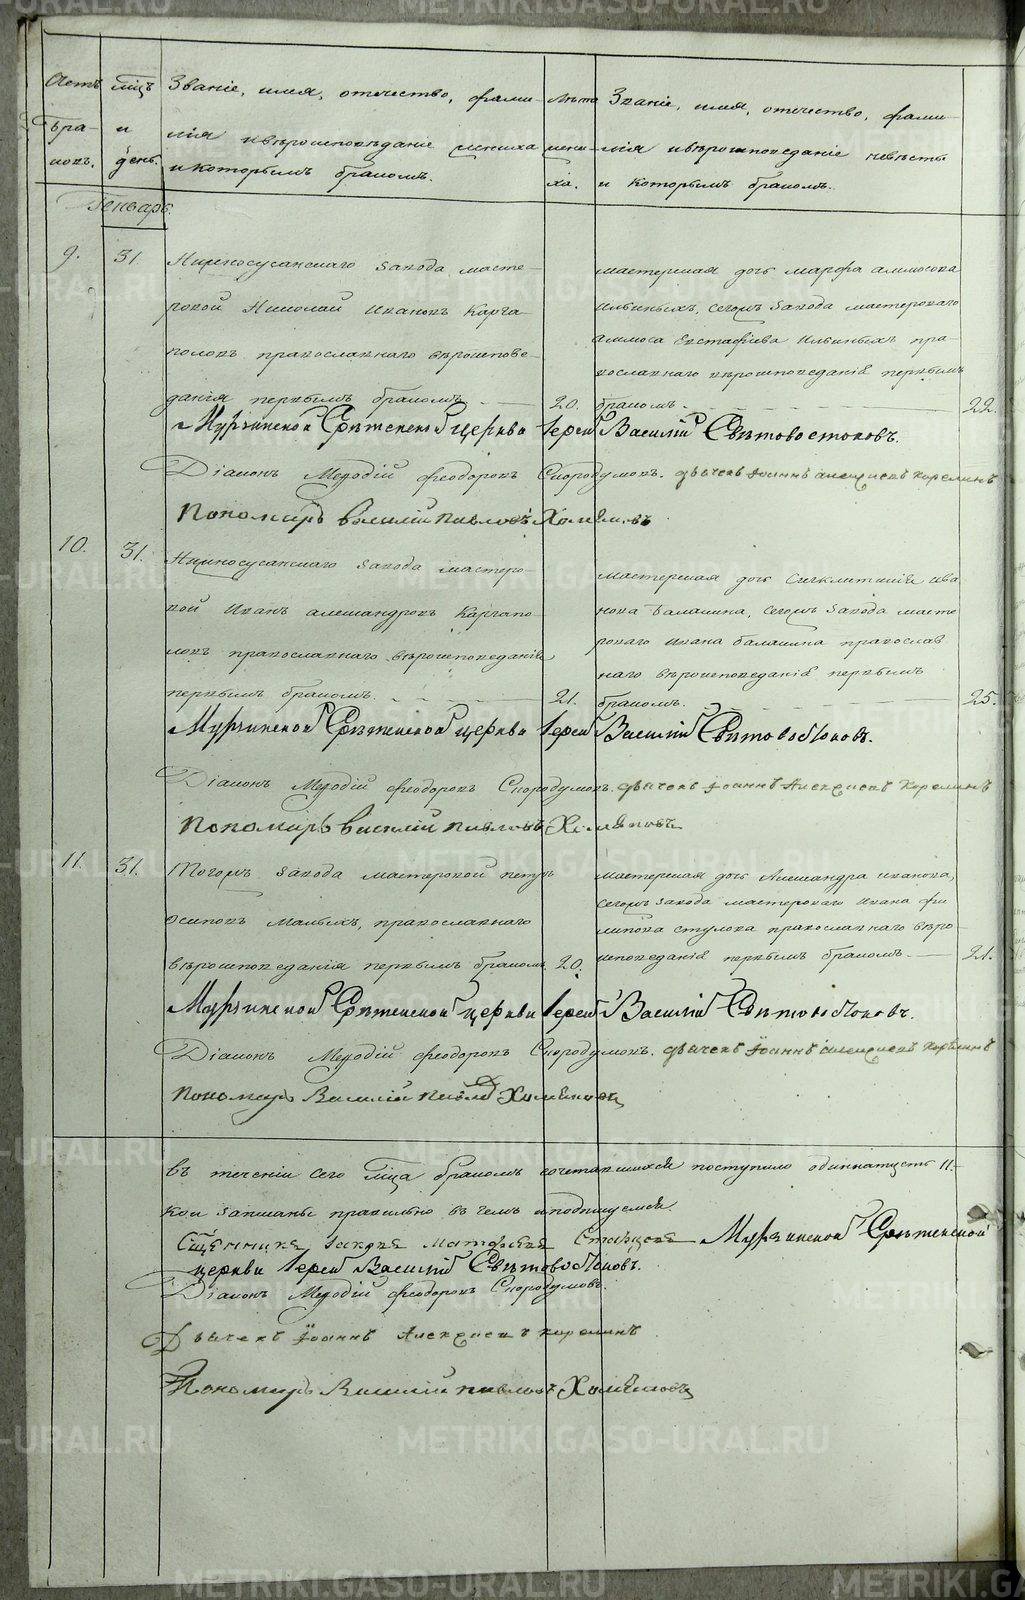 Счетъ мцъ Званіе, имя, отечество, фами- лѣта Званіе, имя, отечество, фами-
бра- и лія и вѣроисповѣданіе жениха жени- лія и вѣроисповѣданіе невѣсты
ковъ. день. и которымъ бракомъ. ха. и которымъ бракомъ.
Генварь.
9. 31. Нижносусанскаго завода масте-
ровой Николай Ивановъ Карга-
половъ православнаго вѣроиспове-
данія первымъ бракомъ. 20.
мастерская дочь Марфа Аммосова
Ильиныхъ, сегожъ завода мастероваго
Аммоса Евстафіева Ильиныхъ пра-
вославнаго вѣроисповеданія первымъ
бракомъ. 22.
Мурзинской Срѣтенской церкви Іерей Василій Свѣтовостоковъ.
Діаконъ Мефодій Феодоровъ Скородумовъ. дьячекъ Іоаннъ Алексиевъ Корелинъ
Пономарь Василій Павловъ Хомяковъ
10. 31. Нижносусанскаго завода мастеро-
вой Иванъ Александровъ Каргапо-
ловъ православнаго вѣроисповеданія
первымъ бракомъ. 21.
мастерская дочь Сигклитикія Ива-
нова Балакина, сегожъ завода масте
роваго Ивана Балакина православ
наго вѣроисповеданія первымъ
бракомъ. 25.
Мурзинской Срѣтенской церкви Іерей Василій Свѣтовостоковъ.
Діаконъ Мефодій Феодоровъ Скородумовъ. дьячекъ Іоаннъ Алексиевъ Корелинъ
Пономарь Василій Павловъ Хомяковъ
11. 31. Тогожъ завода мастеровой Петръ
Осиповъ Малыхъ, православнаго
вѣроисповеданія первымъ бракомъ 20.
мастерская дочь Александра Иванова,
сегожъ завода мастероваго Ивана Фи
липова Стулова православнаго вѣро-
исповеданія первымъ бракомъ. 21.
Мурзинской Срѣтенской церкви Іерей Василій Свѣтовостоковъ.
Діаконъ Мефодій Феодоровъ Скородумовъ. дьячекъ Іоаннъ Алексиевъ Корелинъ
Пономарь Василій Павловъ Хомяковъ
въ теченіи сего мца бракомъ сочетавшихся поступило одиннатцеть 11.
кои записаны правильно въ чемъ и подпишемся.
Матфея Старцева Мурзинской Срѣтенской
церкви Іерей Василій Свѣтовостоковъ.
Діаконъ Мефодій Феодоровъ Скородумовъ.
Дьячекъ Іоаннъ Алексиевъ Корелинъ
Пономарь Василій Павловъ Хомяковъ
METRIKI.GASO-URAL.RU